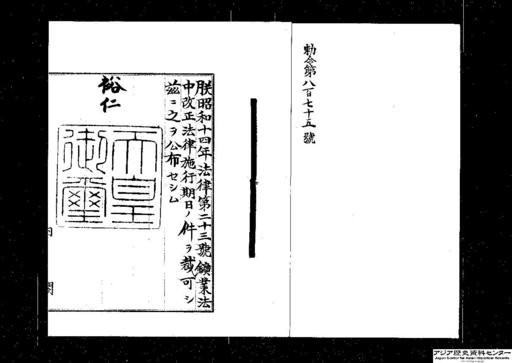 勅令第八百七十五號
朕昭和十四年法律第二十三號鑛業法
中改正法律施行期日ノ件ヲ裁可シ
茲ニ之ヲ公布セシム
裕仁
天皇
御璽
内
閣
アジア歴史資料センター
Japan Center for Asian Historical Records